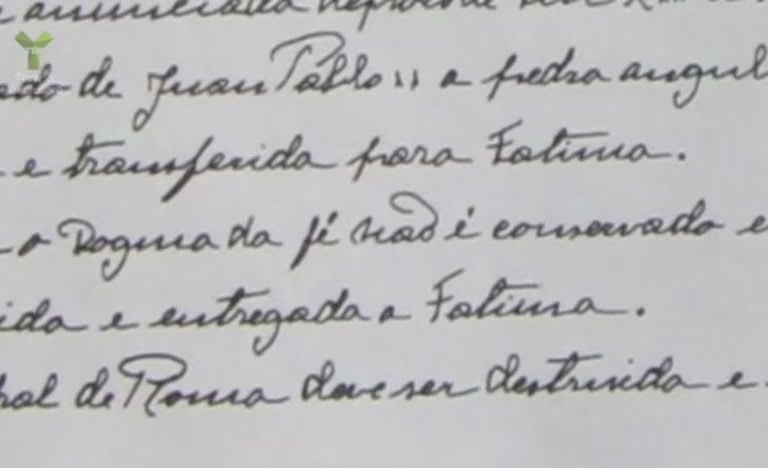 anunciada depois de
ado de Juan Pablo ıı a pedra angul
e transferida para Fatima.
o Dogma da fé não é conservado e
ida e entregada a Fatima.
ral de Roma deve ser destruida e